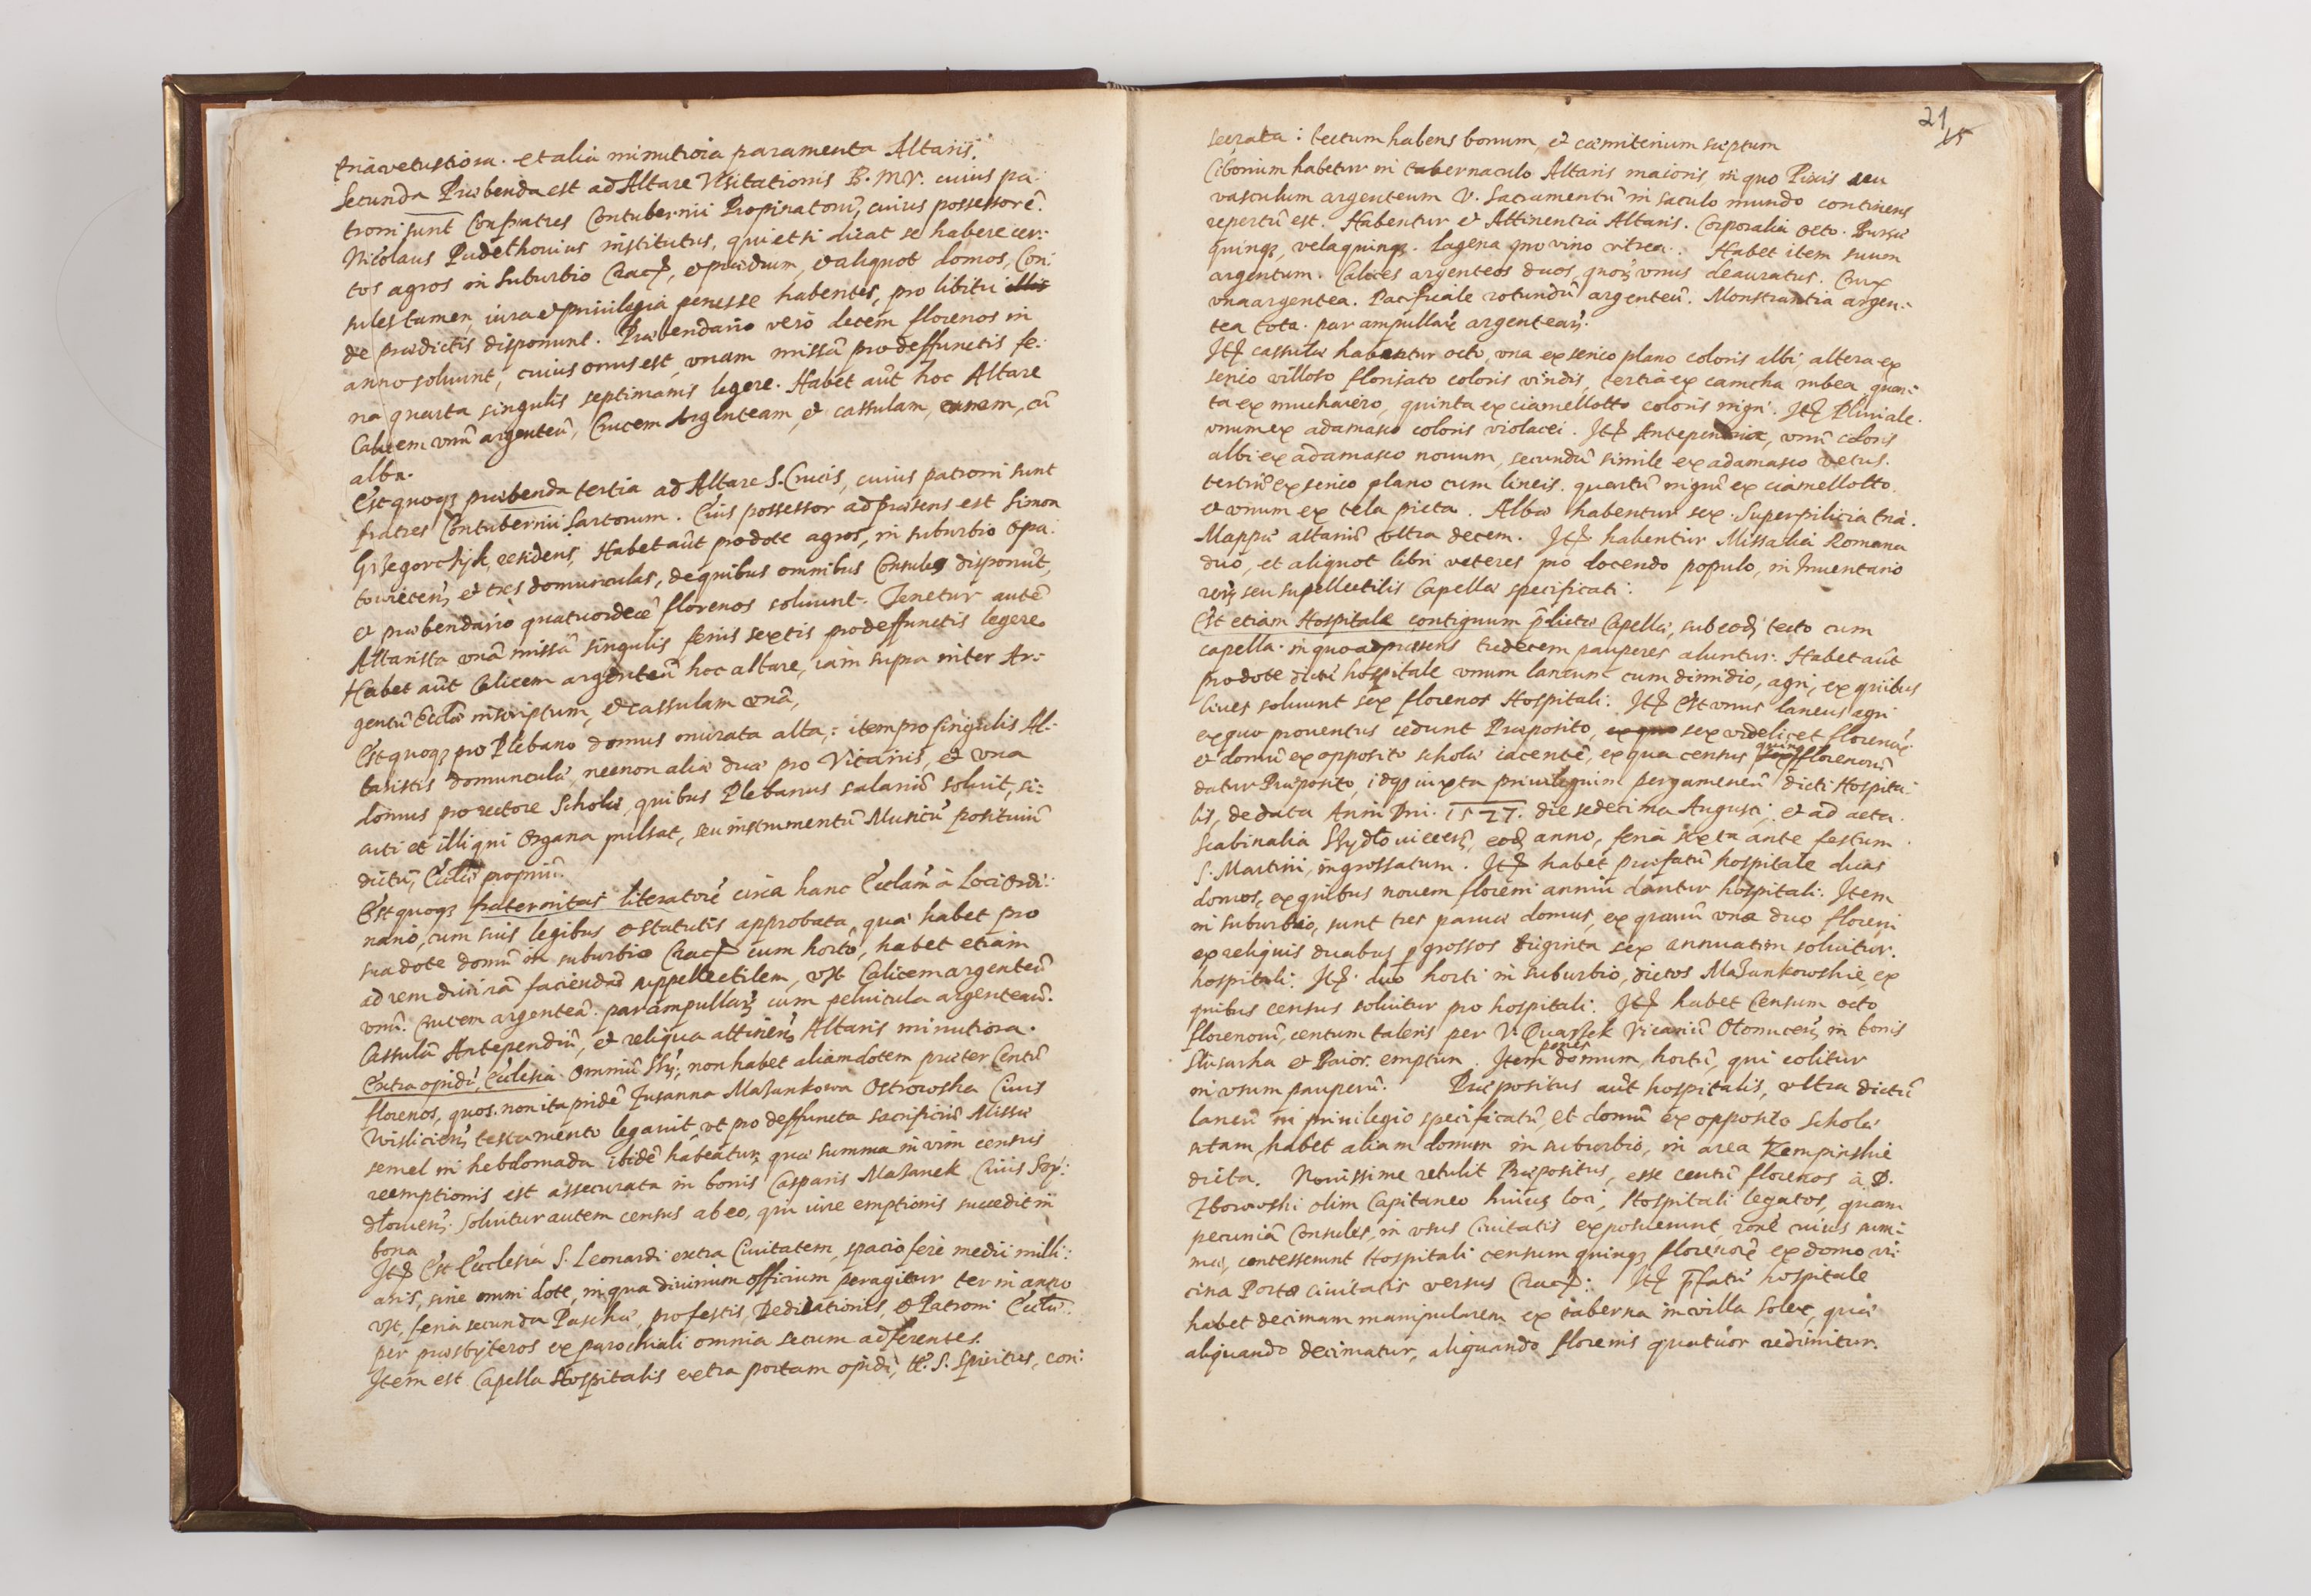 tria vetustiora. et alia minutiora paramenta Altaris.
Secunda Præbenda est ad Altare Visitationis B. M. V. cuius pa:
troni sunt Confratres Contubernii Propinatorũ, cuius possessor ẽ.
Nicolaus Pudethouius institutus, qui etsi dicat se habere cer:
tos agros in suburbio Crac, et prædium, et aliquot domos, Con:
sules tamen, iura et priuilegia penes se habentes, pro libitu illis
de prædictis disponunt. Præbendario verò decem florenos in
anno soluunt, cuius onus est, vnam missã pro deffunctis fe:
ria quarta singulis septimanis legere. Habet aũt hoc Altare
Calicem vnũ argenteũ, Crucem Argenteam, et cassulam, cũ
alba.
Est quoq præbenda tertia ad Altare S. Crucis, cuius patroni sunt
fratres Contubernii Sartorum. Eius possessor ad præsens est Simon
Grzegorczyk, residens, Habet aũt pro dote agros, in suburbio Opa:
touiecen, et tres domunculas, de quibus omnibus Consules disponũt,
et præbendario quatuordecẽ florenos soluunt. Tenetur autẽ
Altarista vnã missã singulis ferijs sextis pro deffunctis legere.
Habet aũt Calicem argenteũ hoc altare, iam supra inter Ar:
gentũ Ecclæ inscriptum, et cassulam vnã,
Est quoq pro Plebano domus murata alta,: item pro singulis Al:
taristis domunculæ, necnon aliæ duæ pro Vicarijs, et vna
domus pro rectore Scholæ, quibus Plebanus salariũ soluit, si:
cuti et illi qui Organa pulsat, seu instrumentũ Musicũ positiuũ
dictũ, Ecclæ propriũ.
Est quoq fraternitas literatorũ circa hanc Ecclam à Loci Ordi:
nario, cum suis legibus et statutis approbata, quæ habet pro
sua dote domũ in suburbio Crac cum horto, habet etiam
ad rem diuinã faciendã suppellectilem, vt Calicem argenteũ
vnũ. Crucem argenteã. par ampullar cum peluicula argentearũ.
Cassulã Antependiũ, et reliqua attinen Altaris minutiora.
Extra opidũ, Ecclesia Omniũ SS; non habet aliam dotem præter Centũ
florenos, quos non ita pridẽ Zusanna Mazankowa Ostrowska Ciuis
Wislicien testamento legauit, vt pro deffuncta sacrificiũ Missæ
semel in hebdomada ibidẽ habeatur, quæ summa in vim census
reemptionis est assecurata in bonis Casparis Mazanek Ciuis Szy:
dlouien. Soluitur autem census ab eo, qui iure emptionis succedit in
bona
It Est Ecclesia S. Leonardi extra Ciuitatem, spacio ferè medii milli:
aris, sine omni dote, in qua diuinum officium peragitur ter in anno
vt, feria secunda Paschæ, pro festis, Dedicationis, et Patroni Ecclæ.
per præsbyteros ex parochiali omnia secum adferentes.
Item est Capella Hospitalis extra portam opidi, tt. S. Spiritus, con:
21
15
secrata: tectum habens bonum, et cæmiterium septum
Ciborium habetur in tabernaculo Altaris maioris, in quo Pixis seu
vasculum argenteum V. Sacramentũ in saculo mundo continens
repertũ est. Habentur et Attinentia Altaris. Corporalia octo. Bursæ
quinq, vela quinq. Lagena pro vino vitrea. Habet item suum
argentum. Calices argenteos duos, quor vnus deauratus. Crux
vna argentea. Pacificale rotundũ argenteũ. Monstrantia argen:
tea tota. par ampullar argentear.
It cassulæ habentur octo, vna ex serico plano coloris albi, altera ex
serico villoso florisato coloris viridis, tertia ex camcha rubea, quar:
ta ex muchaiero, quinta ex ciamellotto coloris nigri. It Pluuiale.
vnum ex adamasco coloris violacei. It Antependia, vnũ coloris
albi ex adamasco nouum, secundũ simile ex adamasco vetus.
tertiũ ex serico plano cum lineis. quartũ nigrũ ex ciamellotto.
et vnum ex tela picta. Albæ habentur sex. Superpilicia tria.
Mappæ altariũ vltra decem. It habentur Missalia Romana
duo, et aliquot libri veteres pro docendo populo, in Inuentario
rer seu supellectilis Capellæ specificati:
Est etiam Hospitale contiguum pdictæ Capellæ, sub eod tecto cum
capella. in quo ad præsens tredecem pauperes aluntur: Habet aũt
pro dote dictũ hospitale vnum laneum cum dimidio, agri, ex quibus
Ciues soluunt sex florenos Hospitali: It Est vnus laneus agri
ex quo prouentus cedunt Præposito, ex quo sex videlicet florenor
et domũ ex opposito scholæ iacentẽ, ex qua census sex quinq florenorũ
datur Præposito, idq iuxta priuilegium pergameneũ dicti Hospita:
lis, de data Anni Dni. 1527. die sedecima Augusti, et ad acta
Scabinalia Szydlouicen, eod anno, feria sexta ante festum
S. Martini, ingrossatum. It habet præfatũ hospitale duas
domos, ex quibus nouem floreni annui dantur hospitali: Item
in suburbio, sunt tres paruæ domus, ex quarũ vna duo floreni
ex reliquis duabus p grossos triginta sex annuatim soluitur.
hospitali: It. duo horti in suburbio, dictos Mazankowskie, ex
quibus census soluitur pro hospitali: It habet Censum octo
florenorũ, centum taleris per V. Quassek Vicariũ Olomucen in bonis
Slusarka et Paior. emptun. Item penes domum, hortũ, qui colitur
in vsum pauperũ. Præpositus aũt hospitalis, vltra dictũ
laneũ in priuilegio specificatũ, et domũ ex opposito scholæ
sitam, habet aliam domum in suburbio, in area Kempinskie
dicta. Nouissime retulit Præpositus, esse centũ florenos à D.
Zborowski olim Capitaneo huius loci, Hospitali legatos, quam
pecuniã Consules, in vsus Ciuitatis exposuerunt, ronẽ cuius sum:
mæ, contesserunt Hospitali censum quinq florenorũ ex domo vi:
cina Portæ ciuitatis versus Crac: It pfatũ hospitale
habet decimam manipularem ex taberna in villa Solec, quæ
aliquando decimatur, aliquando florenis quatuor redimitur.